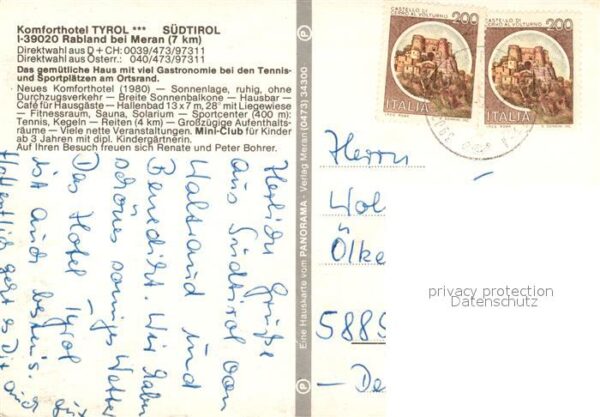 Komforthotel TYROL *** SÜDTIROL
I-39020 Rabland bei Meran (7 km)
Direktwahl aus D + CH: 0039/473/97311
Direktwahl aus Österr.: 040/473/97311
Das gemütliche Haus mit viel Gastronomie bei den Tennis-
und Sportplätzen am Ortsrand.
Neues Komforthotel (1980) — Sonnenlage, ruhig, ohne
Durchzugsverkehr — Breite Sonnenbalkone — Hausbar —
Café für Hausgäste — Hallenbad 13 x 7 m, 28° mit Liegewiese
— Fitnessraum, Sauna, Solarium — Sportcenter (400 m):
Tennis, Kegeln — Reiten (4 km) — Großzügige Aufenthalts-
räume — Viele nette Veranstaltungen. Mini-Club für Kinder
ab 3 Jahren mit dipl. Kindergärtnerin.
Auf Ihren Besuch freuen sich Renate und Peter Bohrer.
Herzliche Grüße
aus Südtirol von
Waltraud und
Benedikt. Wir haben
schönes sonniges Wetter
Das Hotel Tyrol
ist auch bestens.
Hoffentlich geht es Dir auch gut
Eine Hauskarte vom PANORAMA - Verlag Meran (0473) 34300
P
P
CASTELLO DI
CERRO AL VOLTURNO
200
ITALIA
CASTELLO DI
CERRO AL VOLTURNO
200
ITALIA
Herrn
Wol
Ölke
5885
- De
privacy protection
Datenschutz